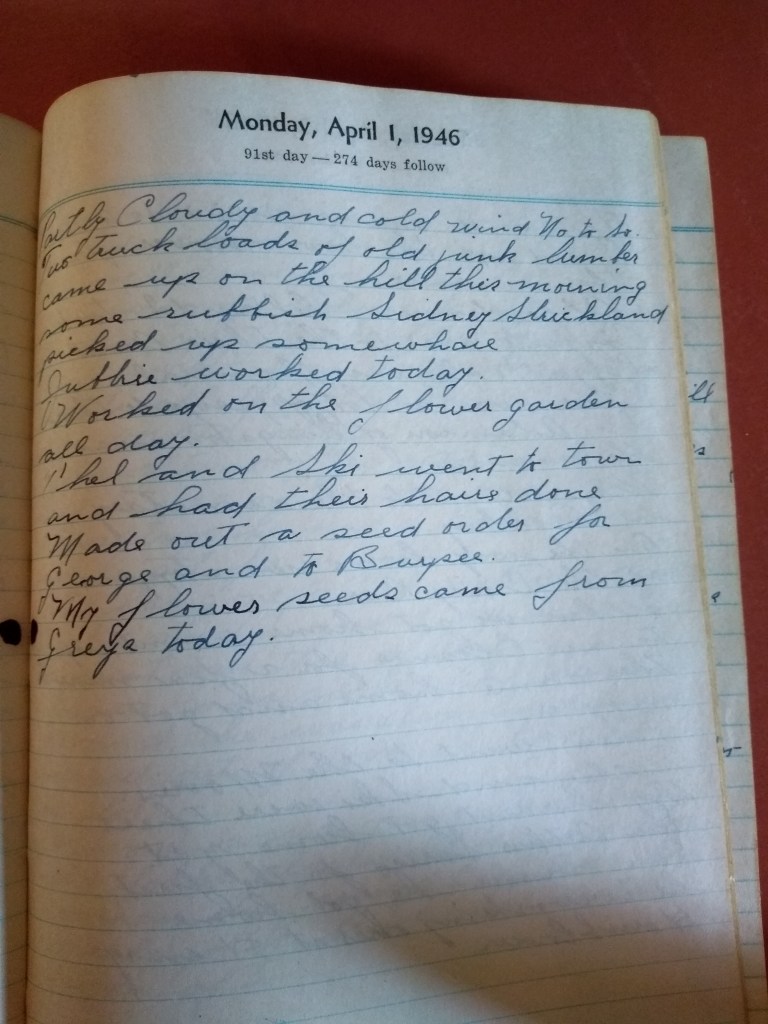 Monday, April 1, 1946
91st day — 274 days follow
Partly Cloudy and cold wind No. to So.
Two truck loads of old junk lumber
came up on the hill this morning
some rubbish Sidney Strickland
picked up somewhare
worked today.
Worked on the flower garden
all day.
Thel and Ski went to town
and had their haire done
Made out a seed order for
George and to Burpee.
My flower seeds came from
today.